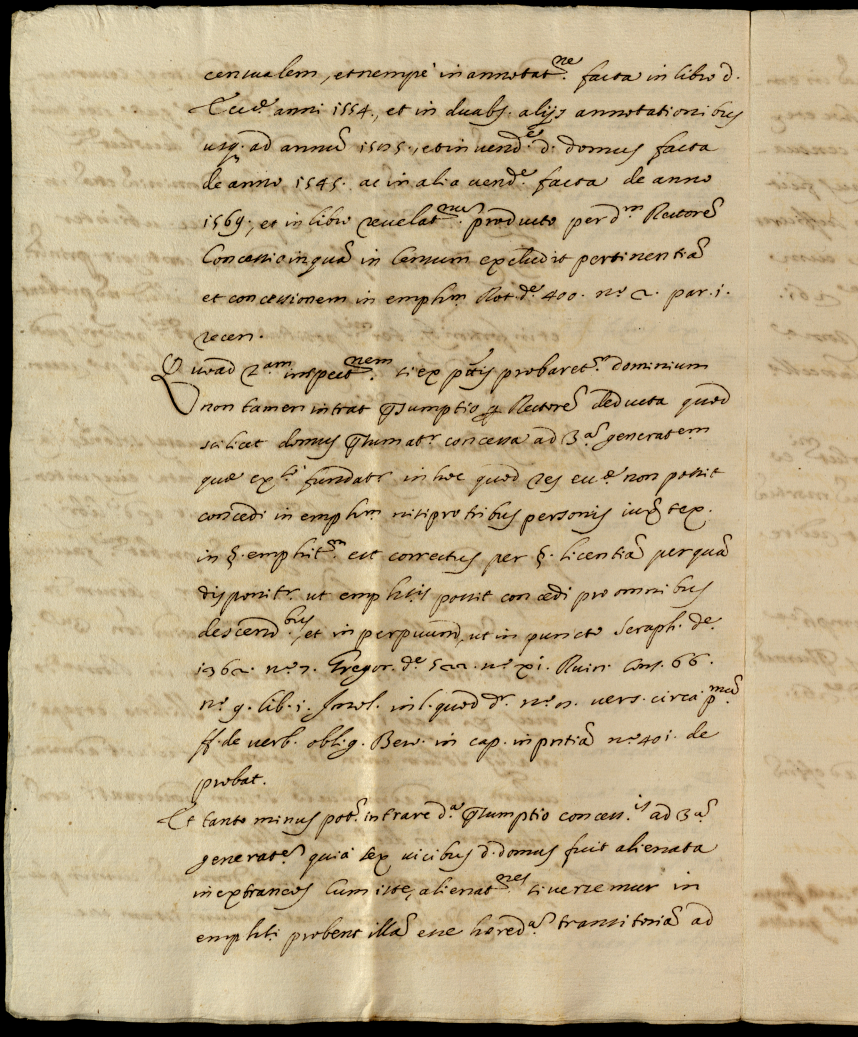 censualem, et nempe in annotat.ne facta in libro d.
Eccl.e anni 1554., et in duabs. alijs annotationibus
usq. ad annũ 1575., et in vend.e d. domus facta
de anno 1545. ac in alia vend.e facta de anno
1569., et in libro revelat.num producto per d.m Rectorẽ
Concessio inquã in Censum excludit pertinentiã
et concessionem in emph.m Rot. de. 400. n.o 2. par. 1.
recen.
Quoad 2.am inspect.nem si ex p.tis probaret.r dominium
non tamen intrat p̃sumptio p Rectorẽ deducta quod
scilicet domus p̃sumat.r concessa ad 3.ã generatem
quæ ex.ti fundat.r in hoc quod res eccl.e non possit
concedi in emph.m nisi pro tribus personis iux.ã tex.
in §. emphit.m est correctus per §. licentiã per quã
disponit.r ut emph.sis possit concedi pro omnibus
descend.bus, et in perpuum, ut in puncto Seraph. de.
1362. n.o 7. Gregor. de. 522. n.o xi. Ruin. Cons. 66.
n.o 9. lib. 1. in l. quod d.r n.o vers. circa p.mũ
ff. de verb. oblig. in cap. in p̃ntiã n.o 401. de
probat.
Et tanto minus pot. intrare d.a p̃sumptio concess.is ad 3.ã
generatẽ quia sex vicibus d. domus fuit alienata
in extraneos Cum iste, alienat.nes si versemur in
emph.ti probent illã esse hered.ã transitoriã ad